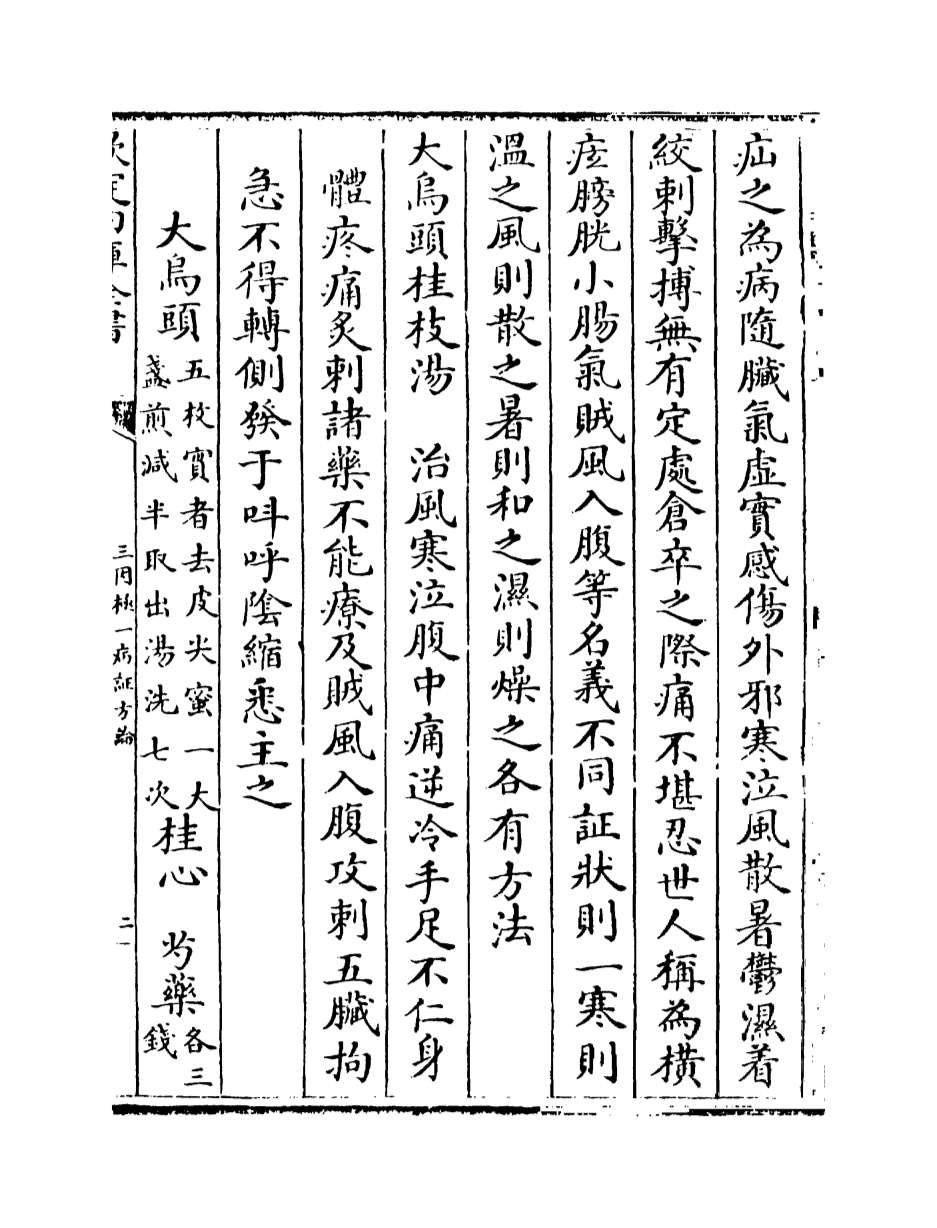 疝之為病隨臟氣虛實感傷外邪寒泣風散暑鬱濕着
絞刺擊搏無有定處倉卒之際痛不堪忍世人稱為橫
痃膀胱小腸氣賊風入腹等名義不同証狀則一寒則
溫之風則散之暑則和之濕則燥之各有方法
大烏頭桂枝湯　治風寒泣腹中痛逆冷手足不仁身
體疼痛炙刺諸藥不能療及賊風入腹攻刺五臟拘
急不得轉側發于呌呼陰縮悉主之
大烏頭五枚實者去皮尖蜜一大盞煎減半取出湯洗七次桂心　芍藥各三錢
欽定四庫全書
三因極一病証方論
二